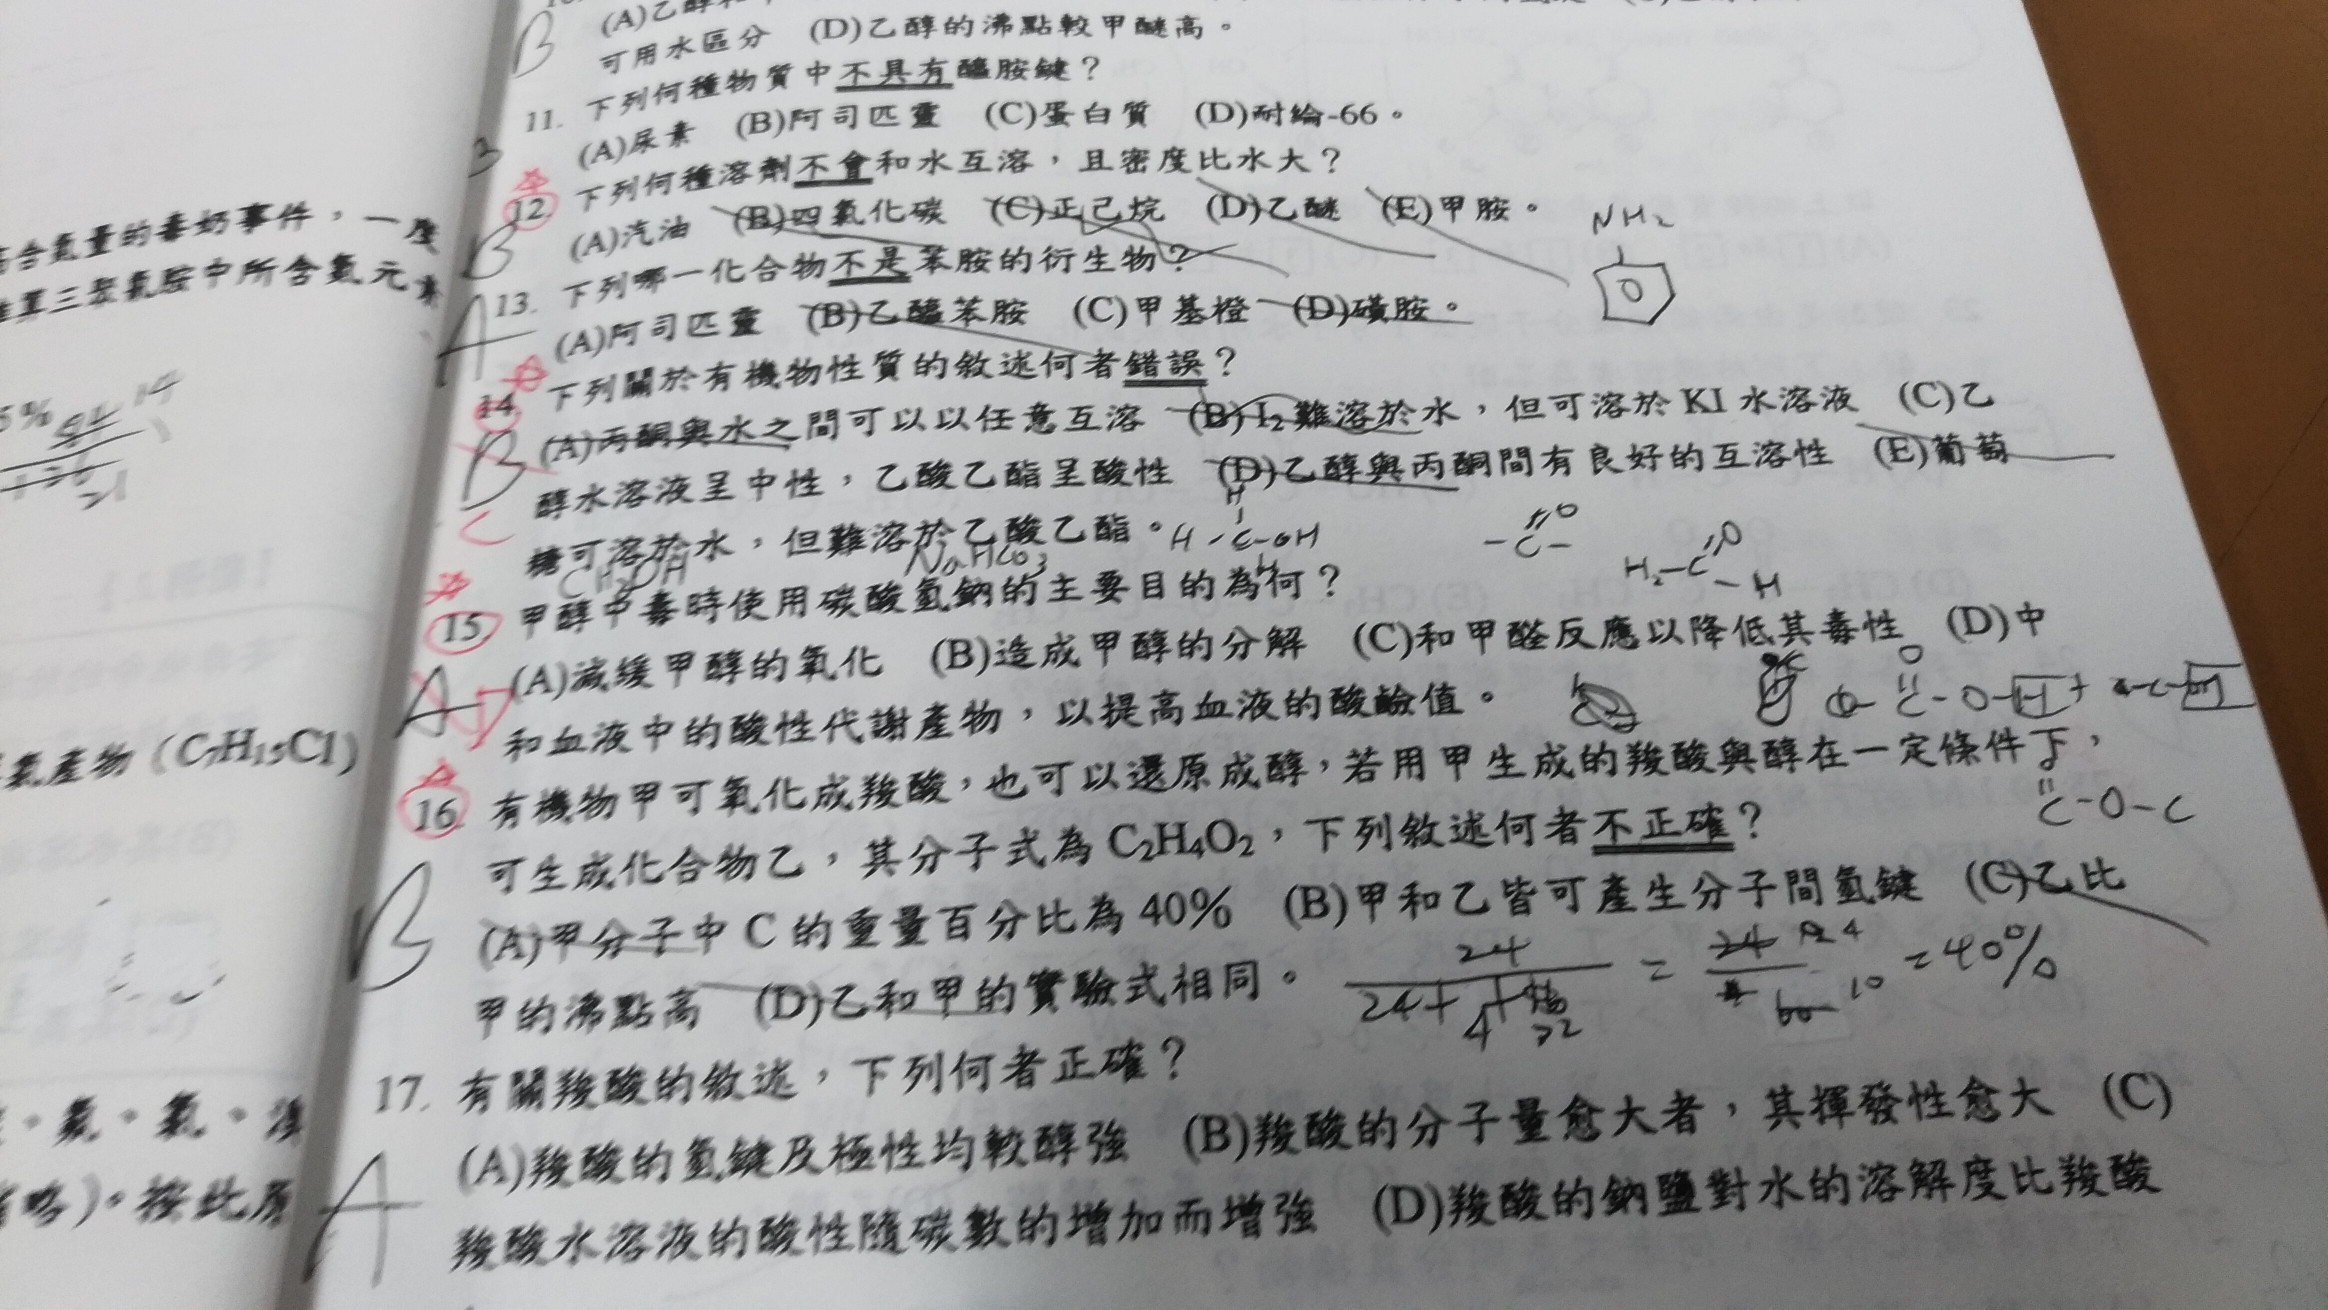 (A)乙醇和
可用水區分 (D)乙醇的沸點較甲醚高。
B
11. 下列何種物質中不具有醯胺鍵？
(A)尿素 (B)阿司匹靈 (C)蛋白質 (D)耐綸-66。
12. 下列何種溶劑不會和水互溶，且密度比水大？
(A)汽油 (B)四氯化碳 (C)正己烷 (D)乙醚 (E)甲胺。
B
NH2
13. 下列哪一化合物不是苯胺的衍生物？
(A)阿司匹靈 (B)乙醯苯胺 (C)甲基橙 (D)磺胺。
A
14. 下列關於有機物性質的敘述何者錯誤？
(A)丙酮與水之間可以以任意互溶 (B) I2難溶於水，但可溶於 KI 水溶液 (C)乙
醇水溶液呈中性，乙酸乙酯呈酸性 (D)乙醇與丙酮間有良好的互溶性 (E)葡萄
糖可溶於水，但難溶於乙酸乙酯。
B
C
CH3OH NaHCO3
15. 甲醇中毒時使用碳酸氫鈉的主要目的為何？
(A)減緩甲醇的氧化 (B)造成甲醇的分解 (C)和甲醛反應以降低其毒性 (D)中
和血液中的酸性代謝產物，以提高血液的酸鹼值。
A D
16. 有機物甲可氧化成羧酸，也可以還原成醇，若用甲生成的羧酸與醇在一定條件下，
可生成化合物乙，其分子式為 C2H4O2，下列敘述何者不正確？
(A)甲分子中 C 的重量百分比為 40% (B)甲和乙皆可產生分子間氫鍵 (C)乙比
甲的沸點高 (D)乙和甲的實驗式相同。
B
= 40%
17. 有關羧酸的敘述，下列何者正確？
(A)羧酸的氫鍵及極性均較醇強 (B)羧酸的分子量愈大者，其揮發性愈大 (C)
羧酸水溶液的酸性隨碳數的增加而增強 (D)羧酸的鈉鹽對水的溶解度比羧酸
A
含氮量的毒奶事件，一度
算三聚氰胺中所含氮元素
氯產物 (C7H15Cl)
略)。按此原